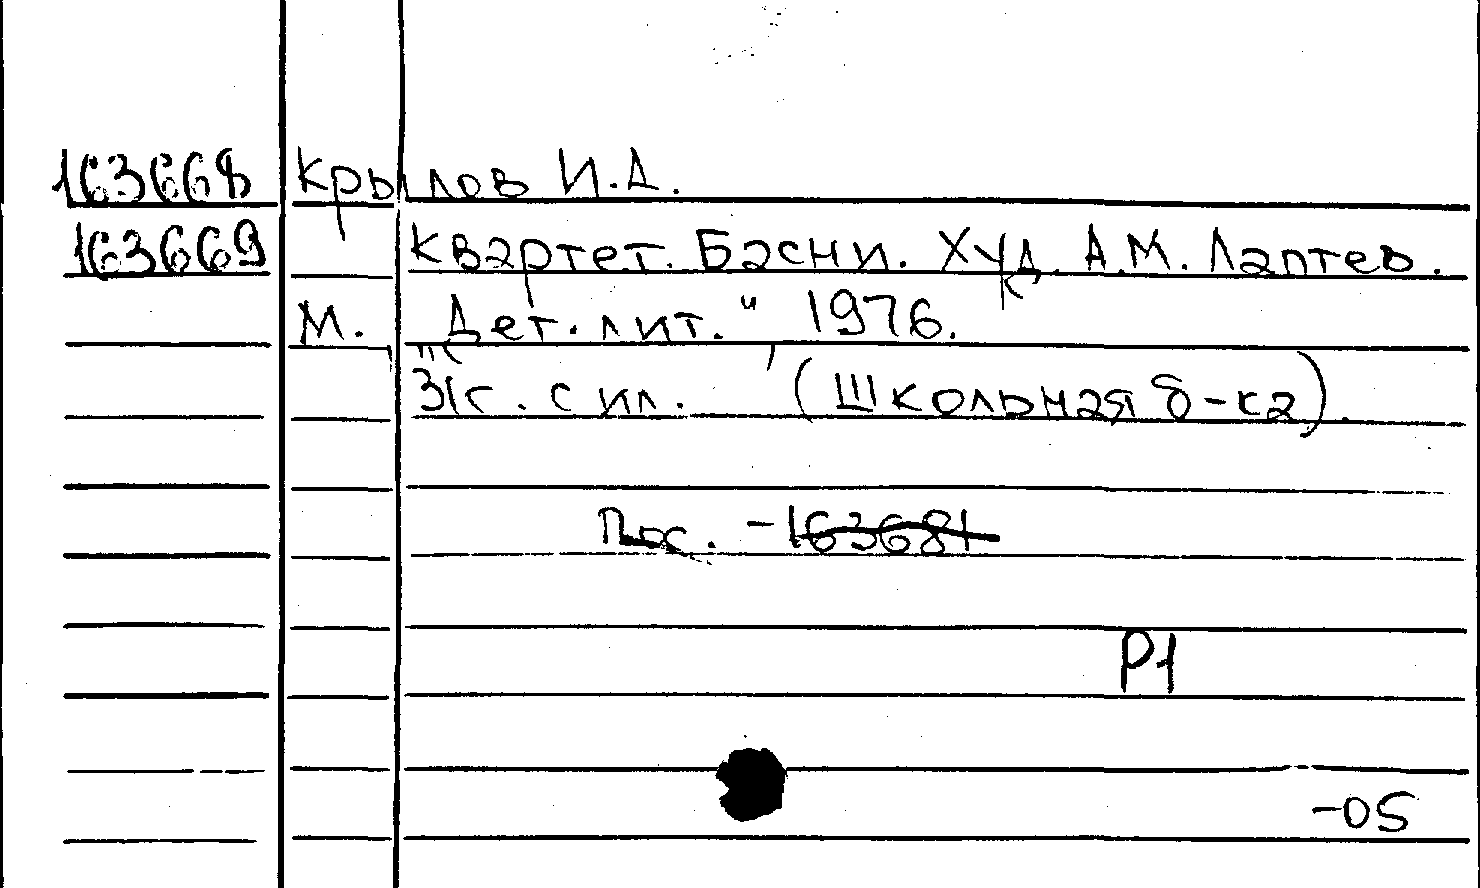 163668 Крылов И.А.
163669 Квартет. Басни. Худ. А.М. Лаптев.
М. "Дет. лит." 1976.
31с. с ил. (Школьная б-ка).
Пос. - 163681
Р1
-05